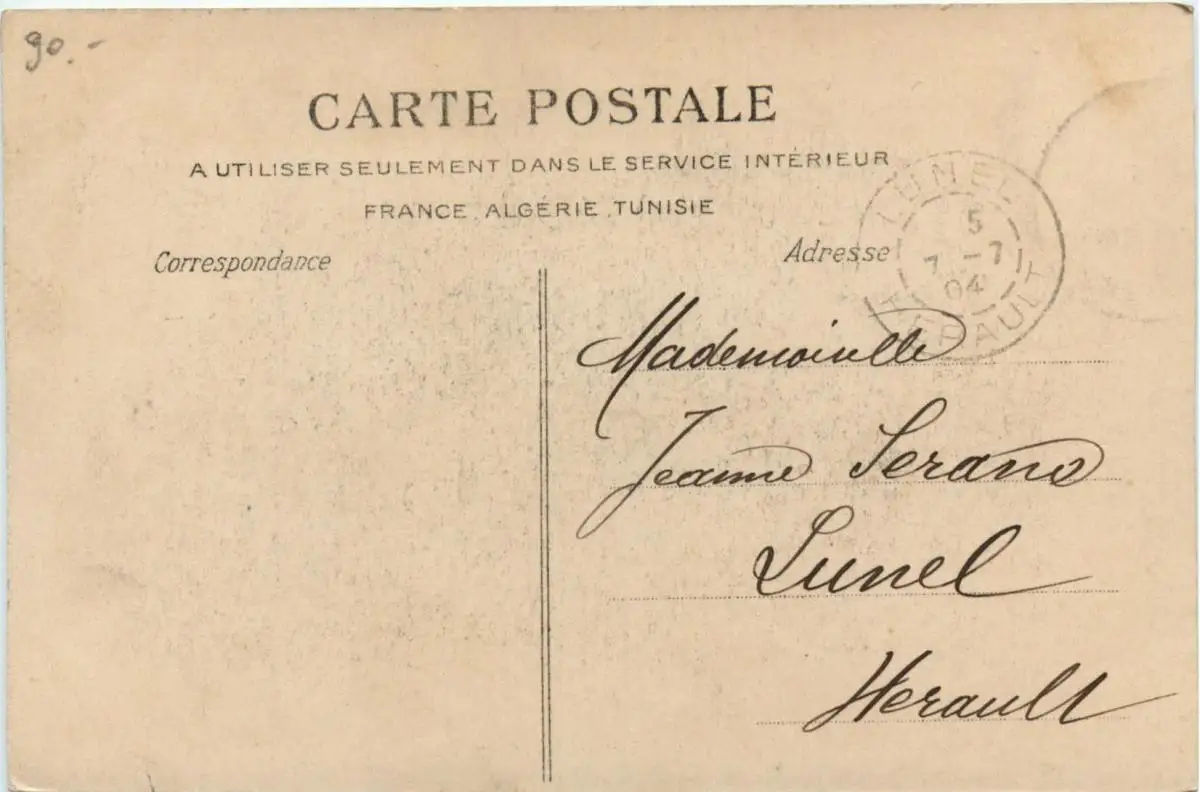 90.-
CARTE POSTALE
A UTILISER SEULEMENT DANS LE SERVICE INTÉRIEUR
FRANCE, ALGÉRIE, TUNISIE
Correspondance
Adresse
LUNEL
5
7 - 7
04
HERAULT
Mademoiselle
Jeanne Serano
Lunel
Herault